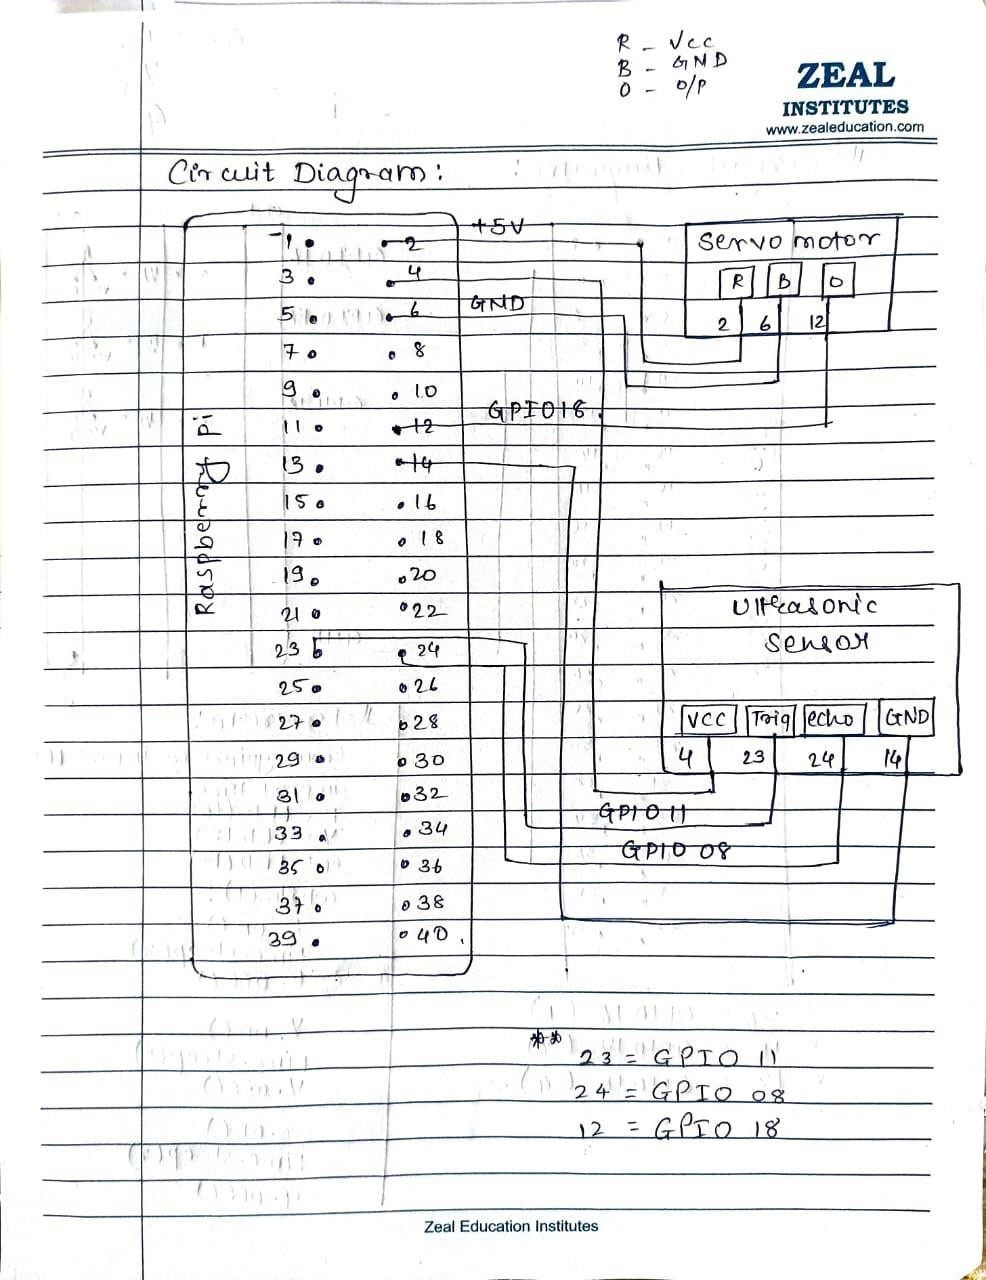 R - Vcc
B - GND
O - O/P
ZEAL
INSTITUTES
www.zealeducation.com
Circuit Diagram:
1 2 +5V
3 4
5 6 GND
7 8
9 10
11 12 GPIO18
13 14
15 16
17 18
19 20
21 22
23 24
25 26
27 28
29 30
31 32
33 34
35 36
37 38
39 40
Raspberry Pi
Servo motor
R B O
2 6 12
Ultrasonic
Sensor
VCC Trig echo GND
4 23 24 14
GPIO 11
GPIO 08
** 23 = GPIO 11
24 = GPIO 08
12 = GPIO 18
Zeal Education Institutes